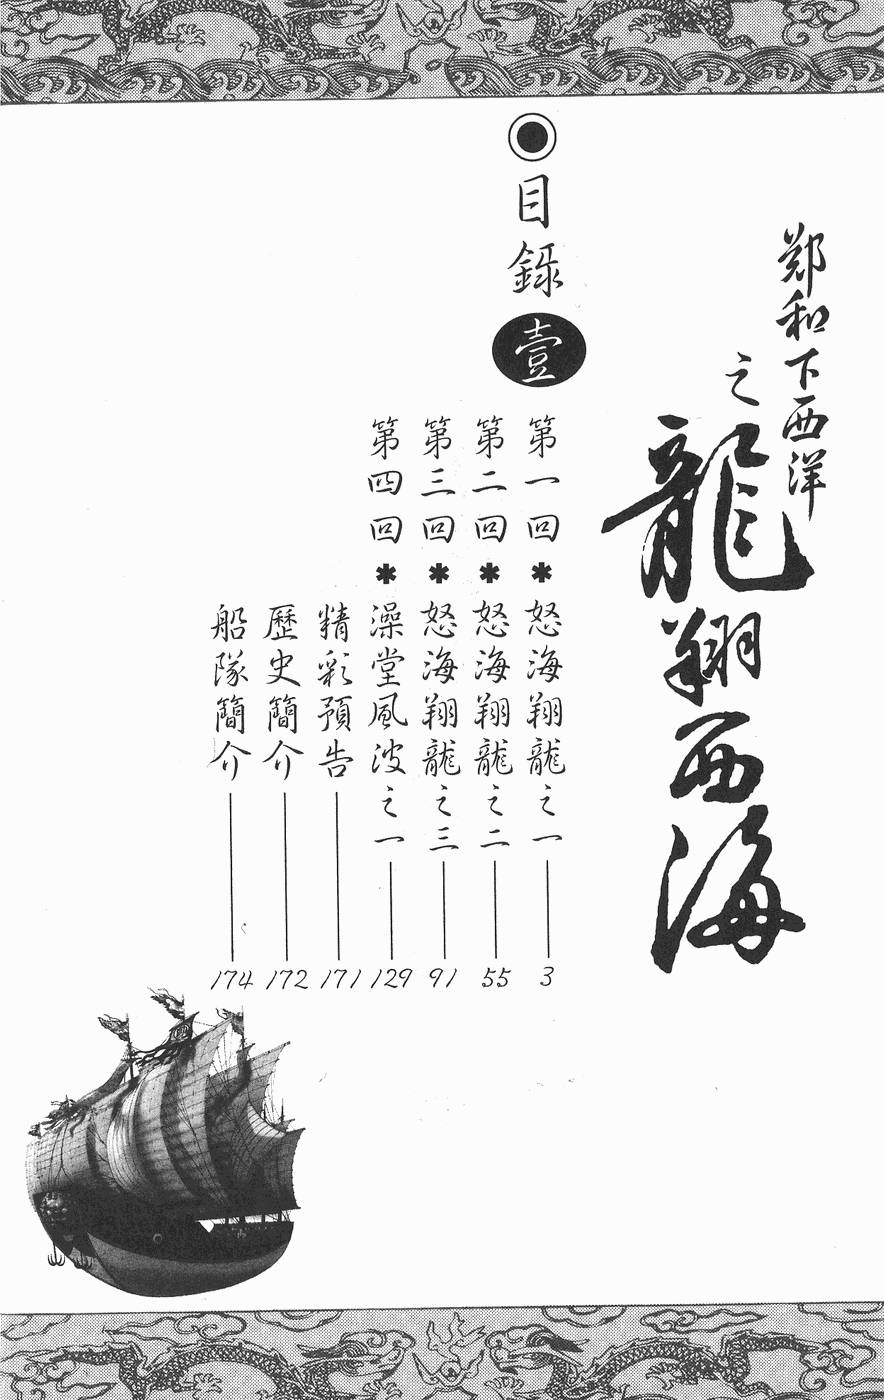 鄭和下西洋
之
龍翔西海
目錄
壹
第一回*怒海翔龍之一 3
第二回*怒海翔龍之二 55
第三回*怒海翔龍之三 91
第四回*澡堂風波之一 129
精彩預告 171
歷史簡介 172
船隊簡介 174